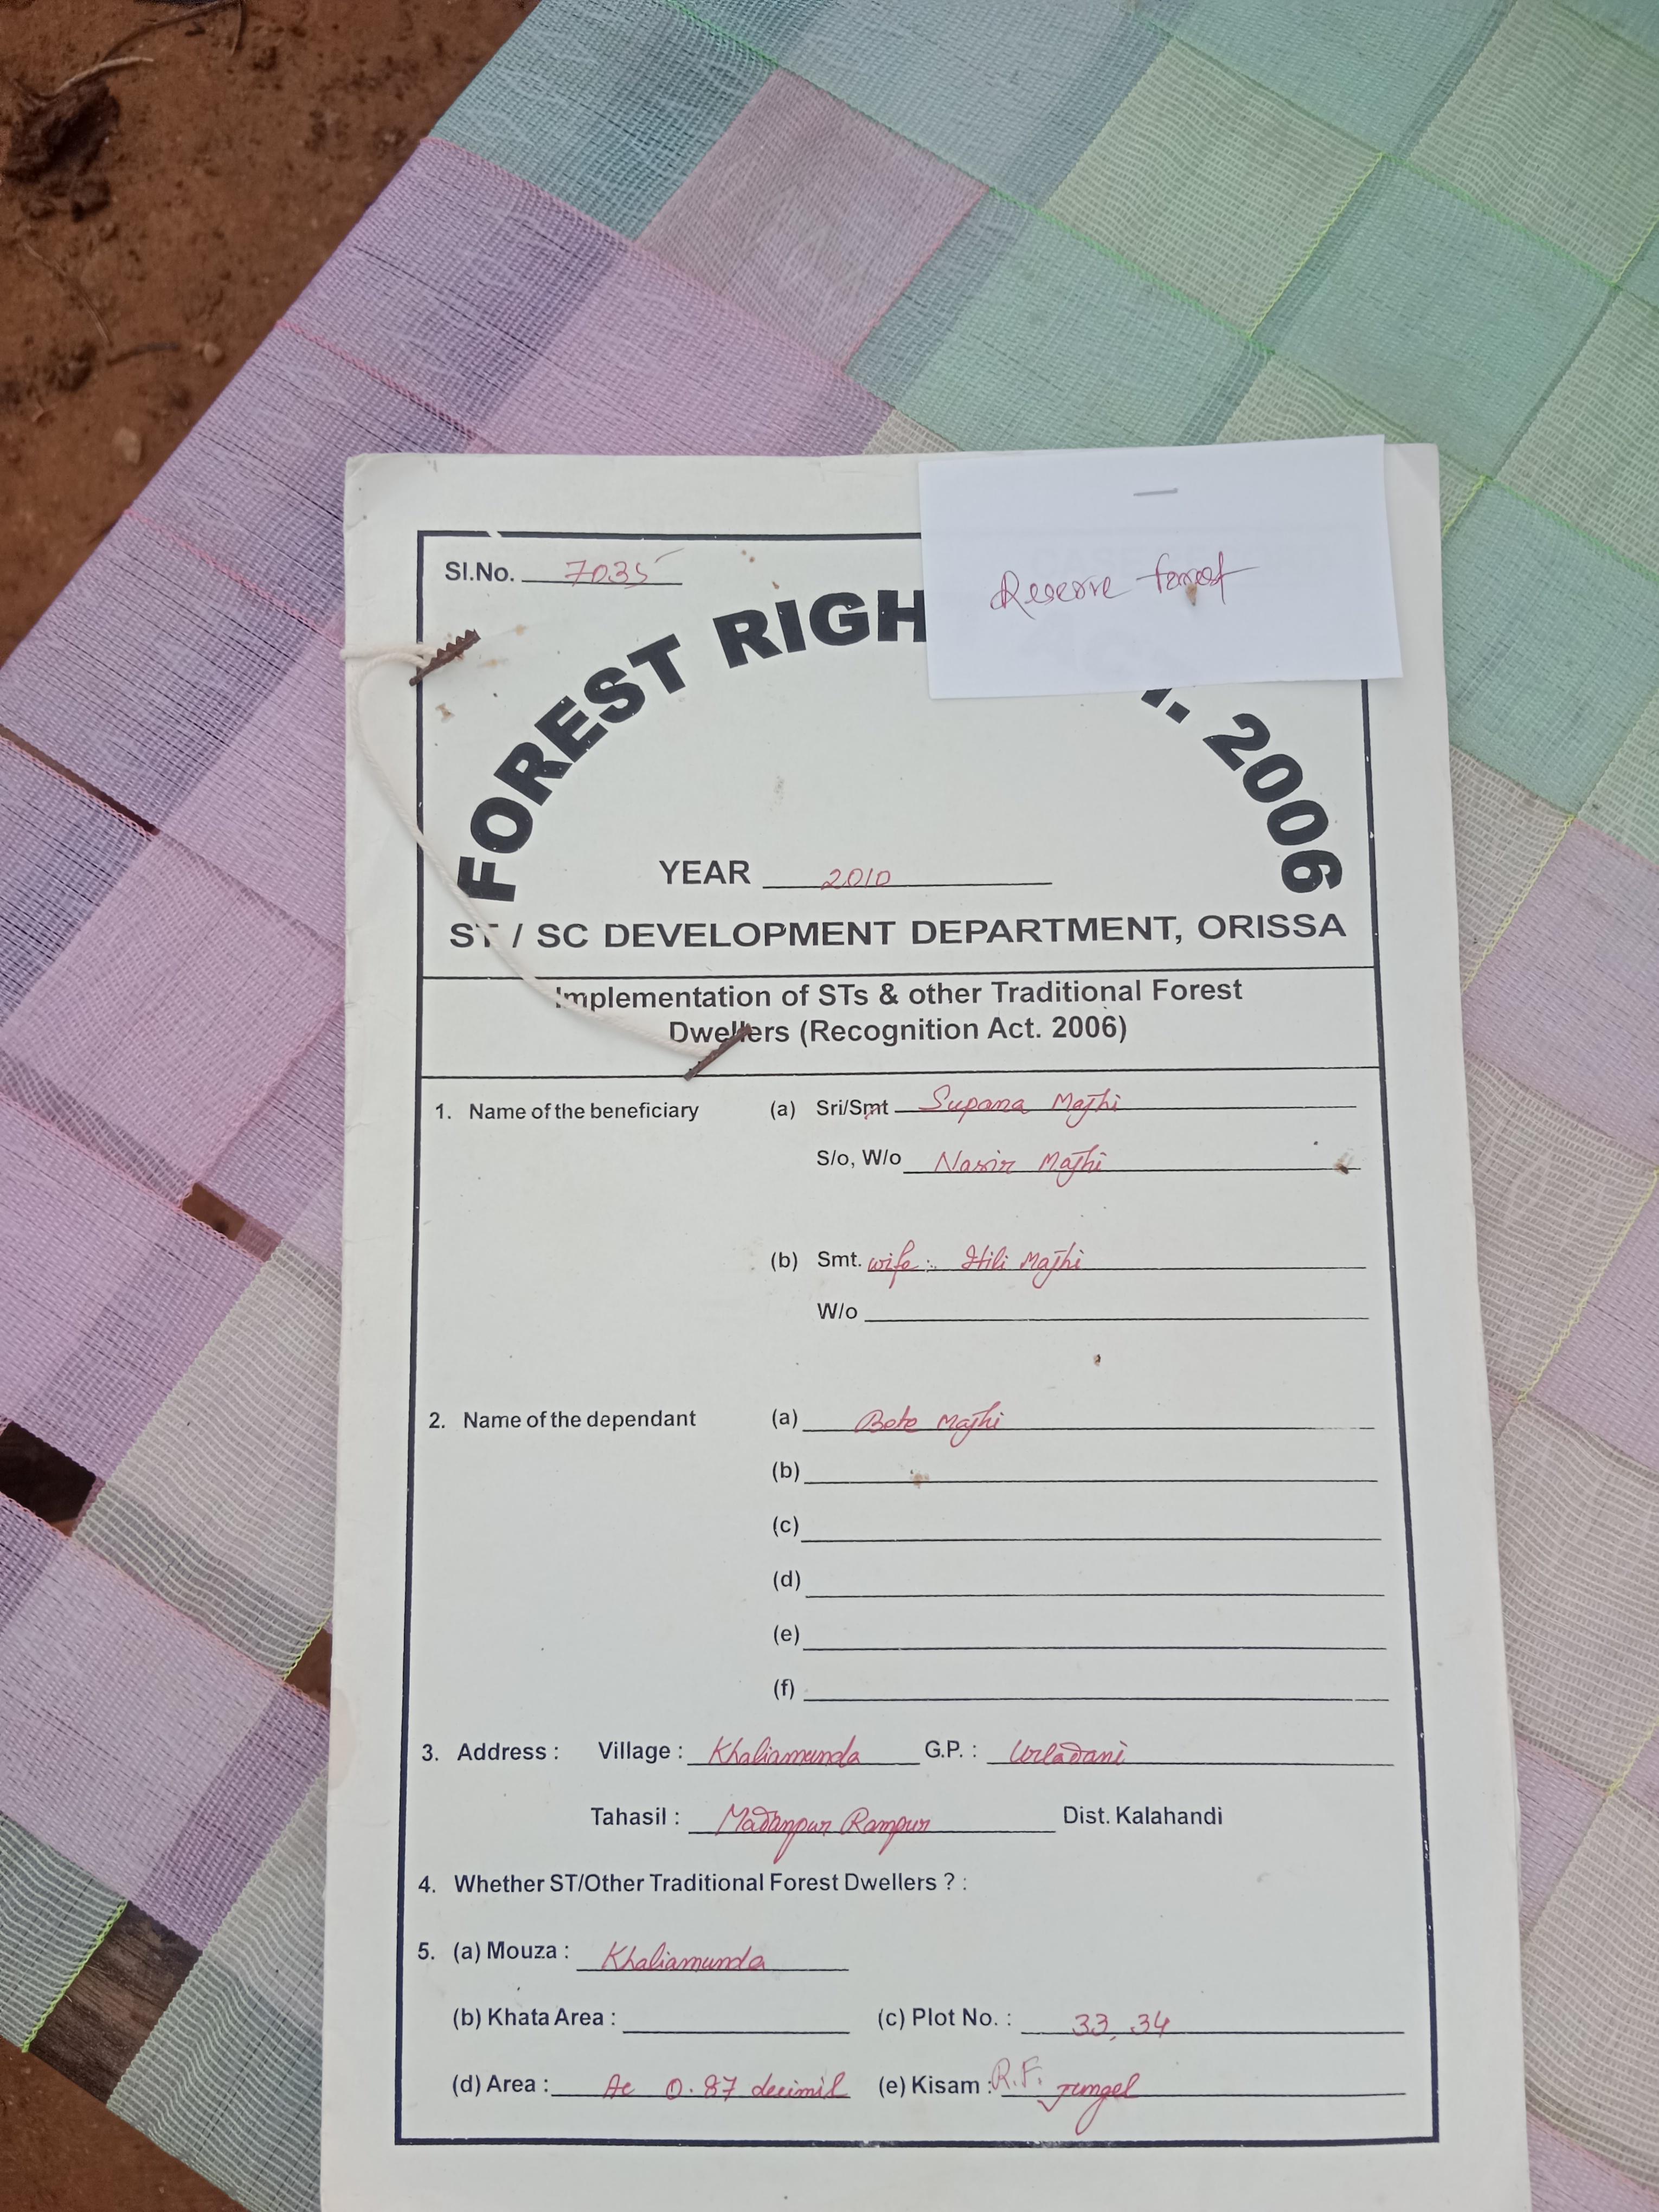 Sl.No. 7035
Reserve forest
FOREST RIGH T. 2006
YEAR 2010
ST / SC DEVELOPMENT DEPARTMENT, ORISSA
Implementation of STs & other Traditional Forest
Dwellers (Recognition Act. 2006)
1. Name of the beneficiary (a) Sri/Smt Supana Majhi
S/o, W/o Nasir Majhi
(b) Smt. wife: Hili Majhi
W/o
2. Name of the dependant (a) Majhi
(b)
(c)
(d)
(e)
(f)
3. Address : Village : Khaliamunda G.P. : Urladani
Tahasil : Madanpur Rampur Dist. Kalahandi
4. Whether ST/Other Traditional Forest Dwellers ? :
5. (a) Mouza : Khaliamunda
(b) Khata Area : (c) Plot No. : 33, 34
(d) Area : Ac 0.87 decimil (e) Kisam : R.F. Jungel